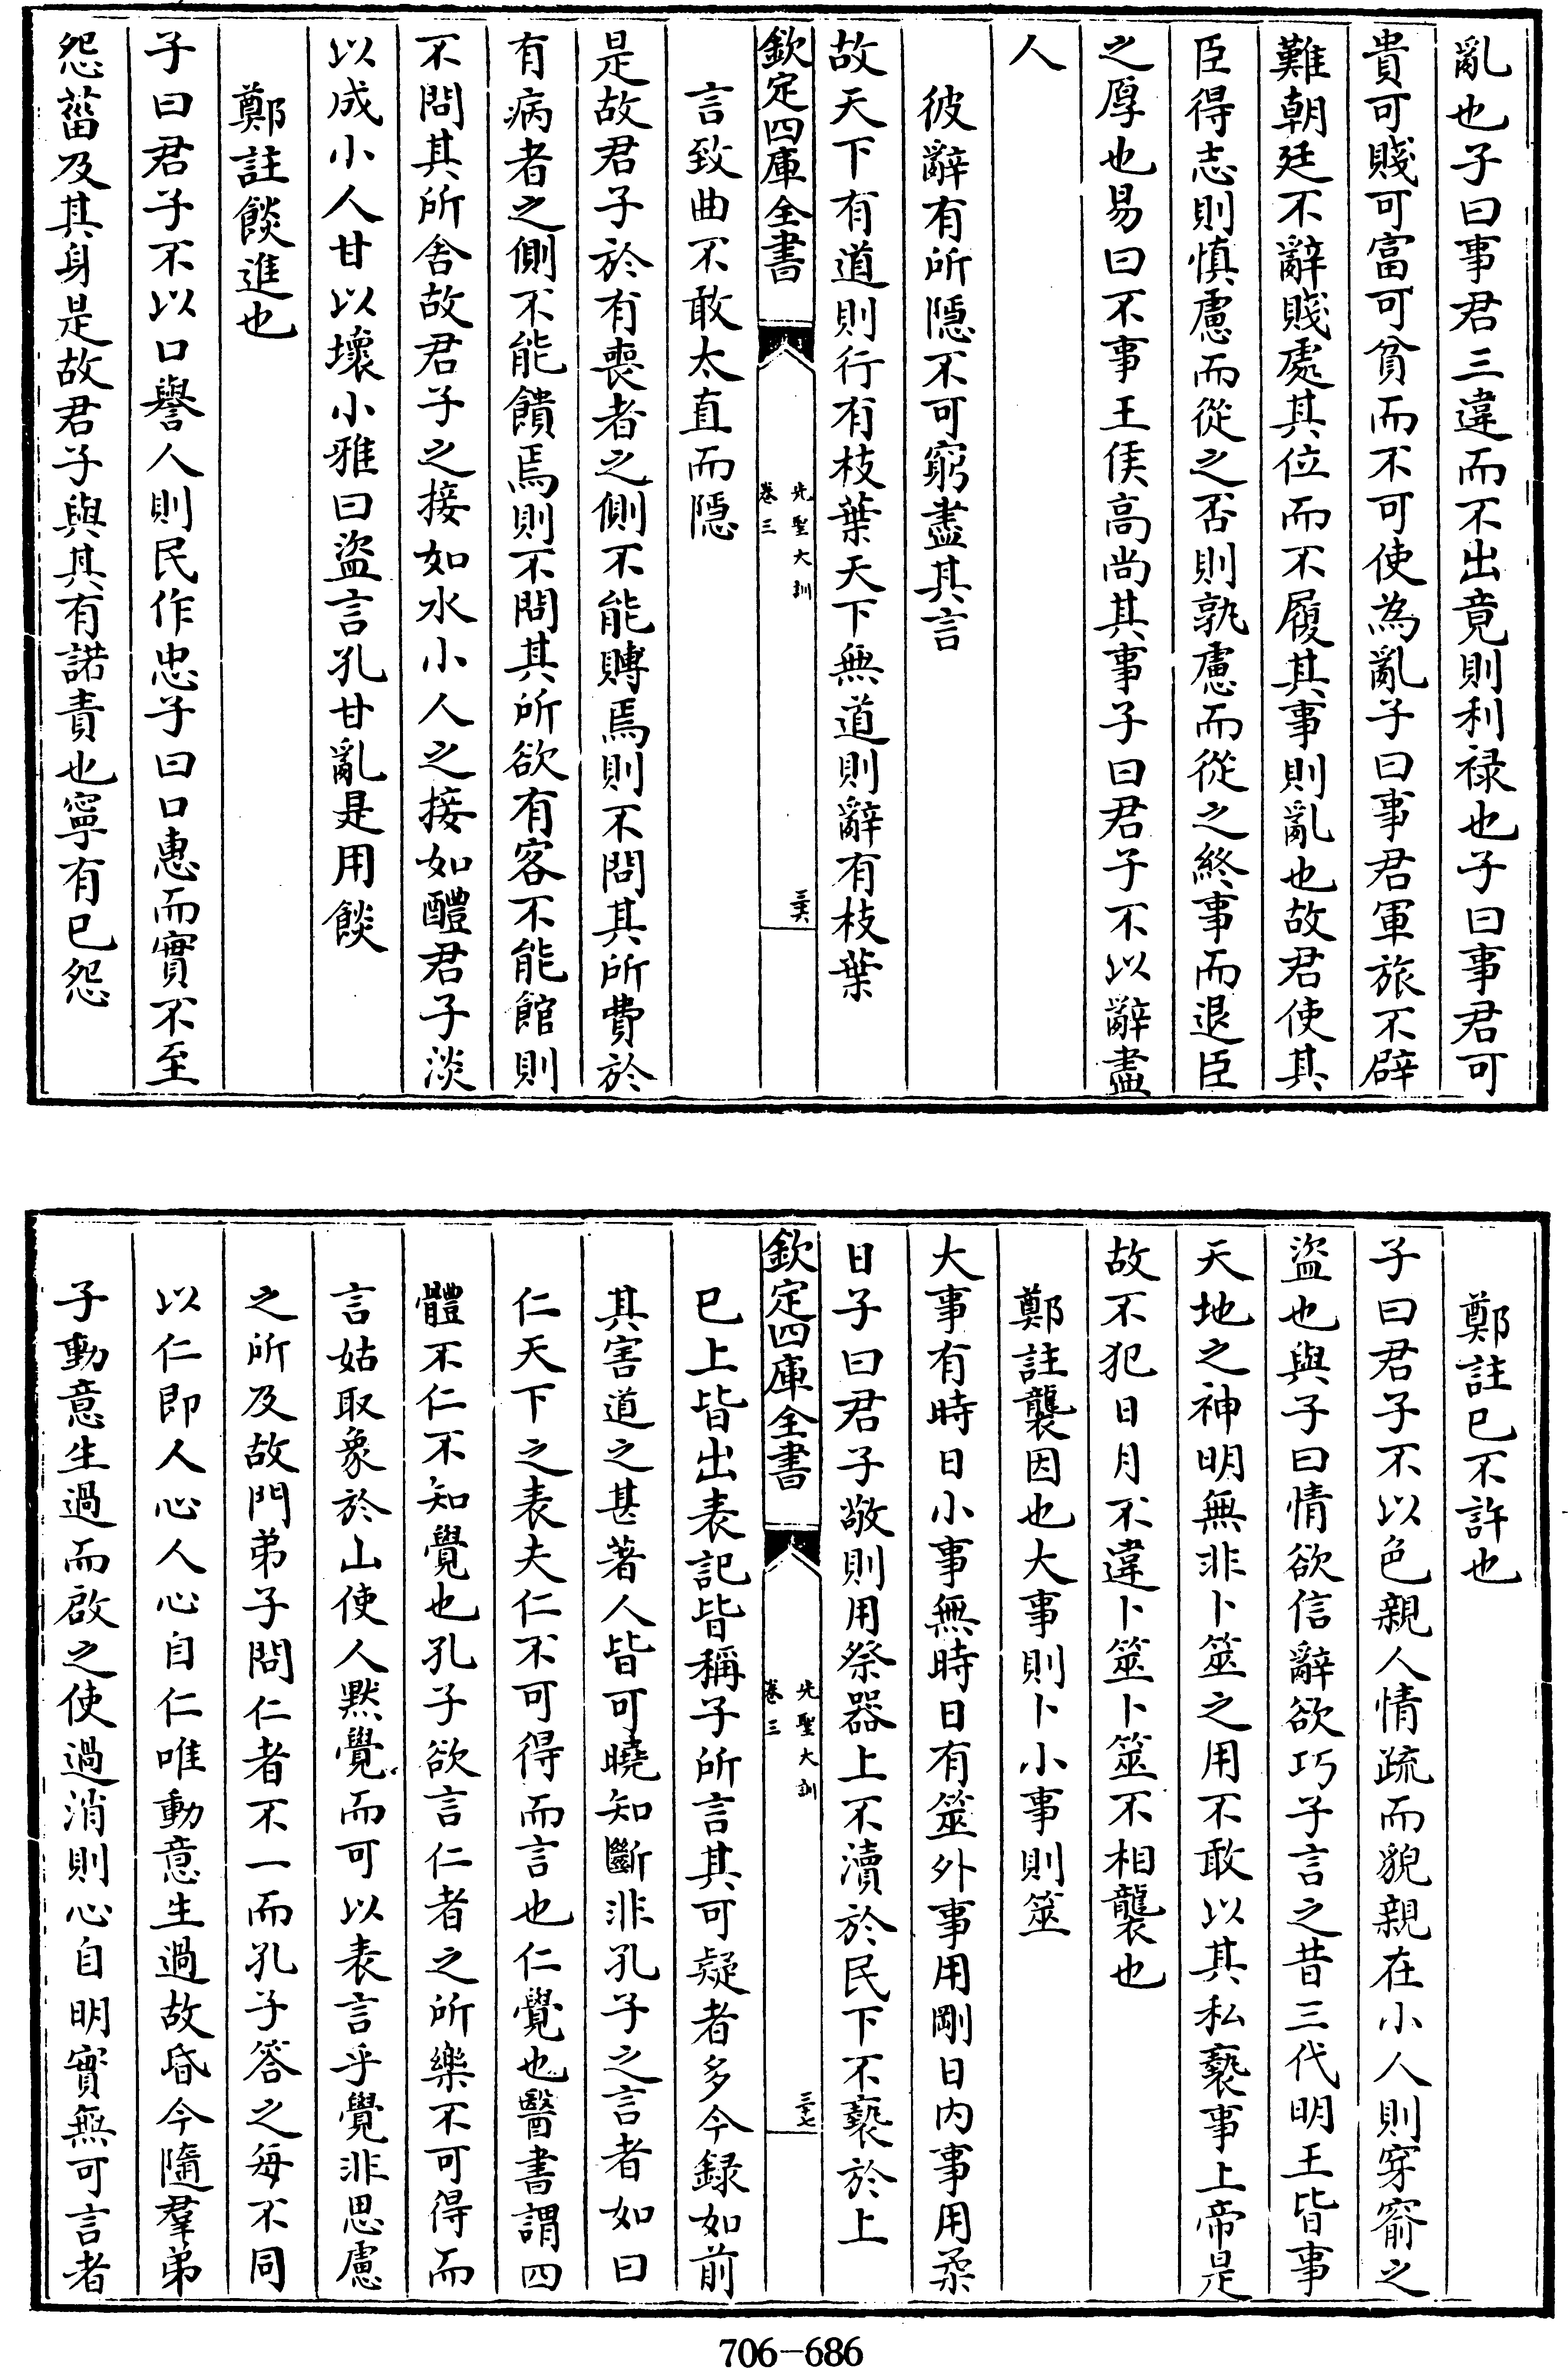 亂也子曰事君三違而不出竟則利祿也子曰事君可
貴可賤可富可貧而不可使為亂子曰事君軍旅不辟
難朝廷不辭賤處其位而不履其事則亂也故君使其
臣得志則慎慮而從之否則孰慮而從之終事而退臣
之厚也易曰不事王侯高尚其事子曰君子不以辭盡
人
彼辭有所隱不可窮盡其言
故天下有道則行有枝葉天下無道則辭有枝葉
欽定四庫全書
先聖大訓
卷三
三十六
言致曲不敢太直而隱
是故君子於有喪者之側不能賻焉則不問其所費於
有病者之側不能饋焉則不問其所欲有客不能館則
不問其所舍故君子之接如水小人之接如醴君子淡
以成小人甘以壞小雅曰盜言孔甘亂是用餤
鄭註餤進也
子曰君子不以口譽人則民作忠子曰口惠而實不至
怨菑及其身是故君子與其有諾責也寧有已怨
鄭註已不許也
子曰君子不以色親人情疏而貌親在小人則穿窬之
盜也與子曰情欲信辭欲巧子言之昔三代明王皆事
天地之神明無非卜筮之用不敢以其私褻事上帝是
故不犯日月不違卜筮卜筮不相襲也
鄭註襲因也大事則卜小事則筮
大事有時日小事無時日有筮外事用剛日內事用柔
日子曰君子敬則用祭器上不瀆於民下不褻於上
欽定四庫全書
先聖大訓
卷三
三十七
已上皆出表記皆稱子所言其可疑者多今録如前
其害道之甚著人皆可曉知斷非孔子之言者如曰
仁天下之表夫仁不可得而言也仁覺也醫書謂四
體不仁不知覺也孔子欲言仁者之所樂不可得而
言姑取象於山使人默覺而可以表言乎覺非思慮
之所及故門弟子問仁者不一而孔子答之每不同
以仁即人心人心自仁唯動意生過故昏今隨羣弟
子動意生過而啟之使過消則心自明實無可言者
706-686